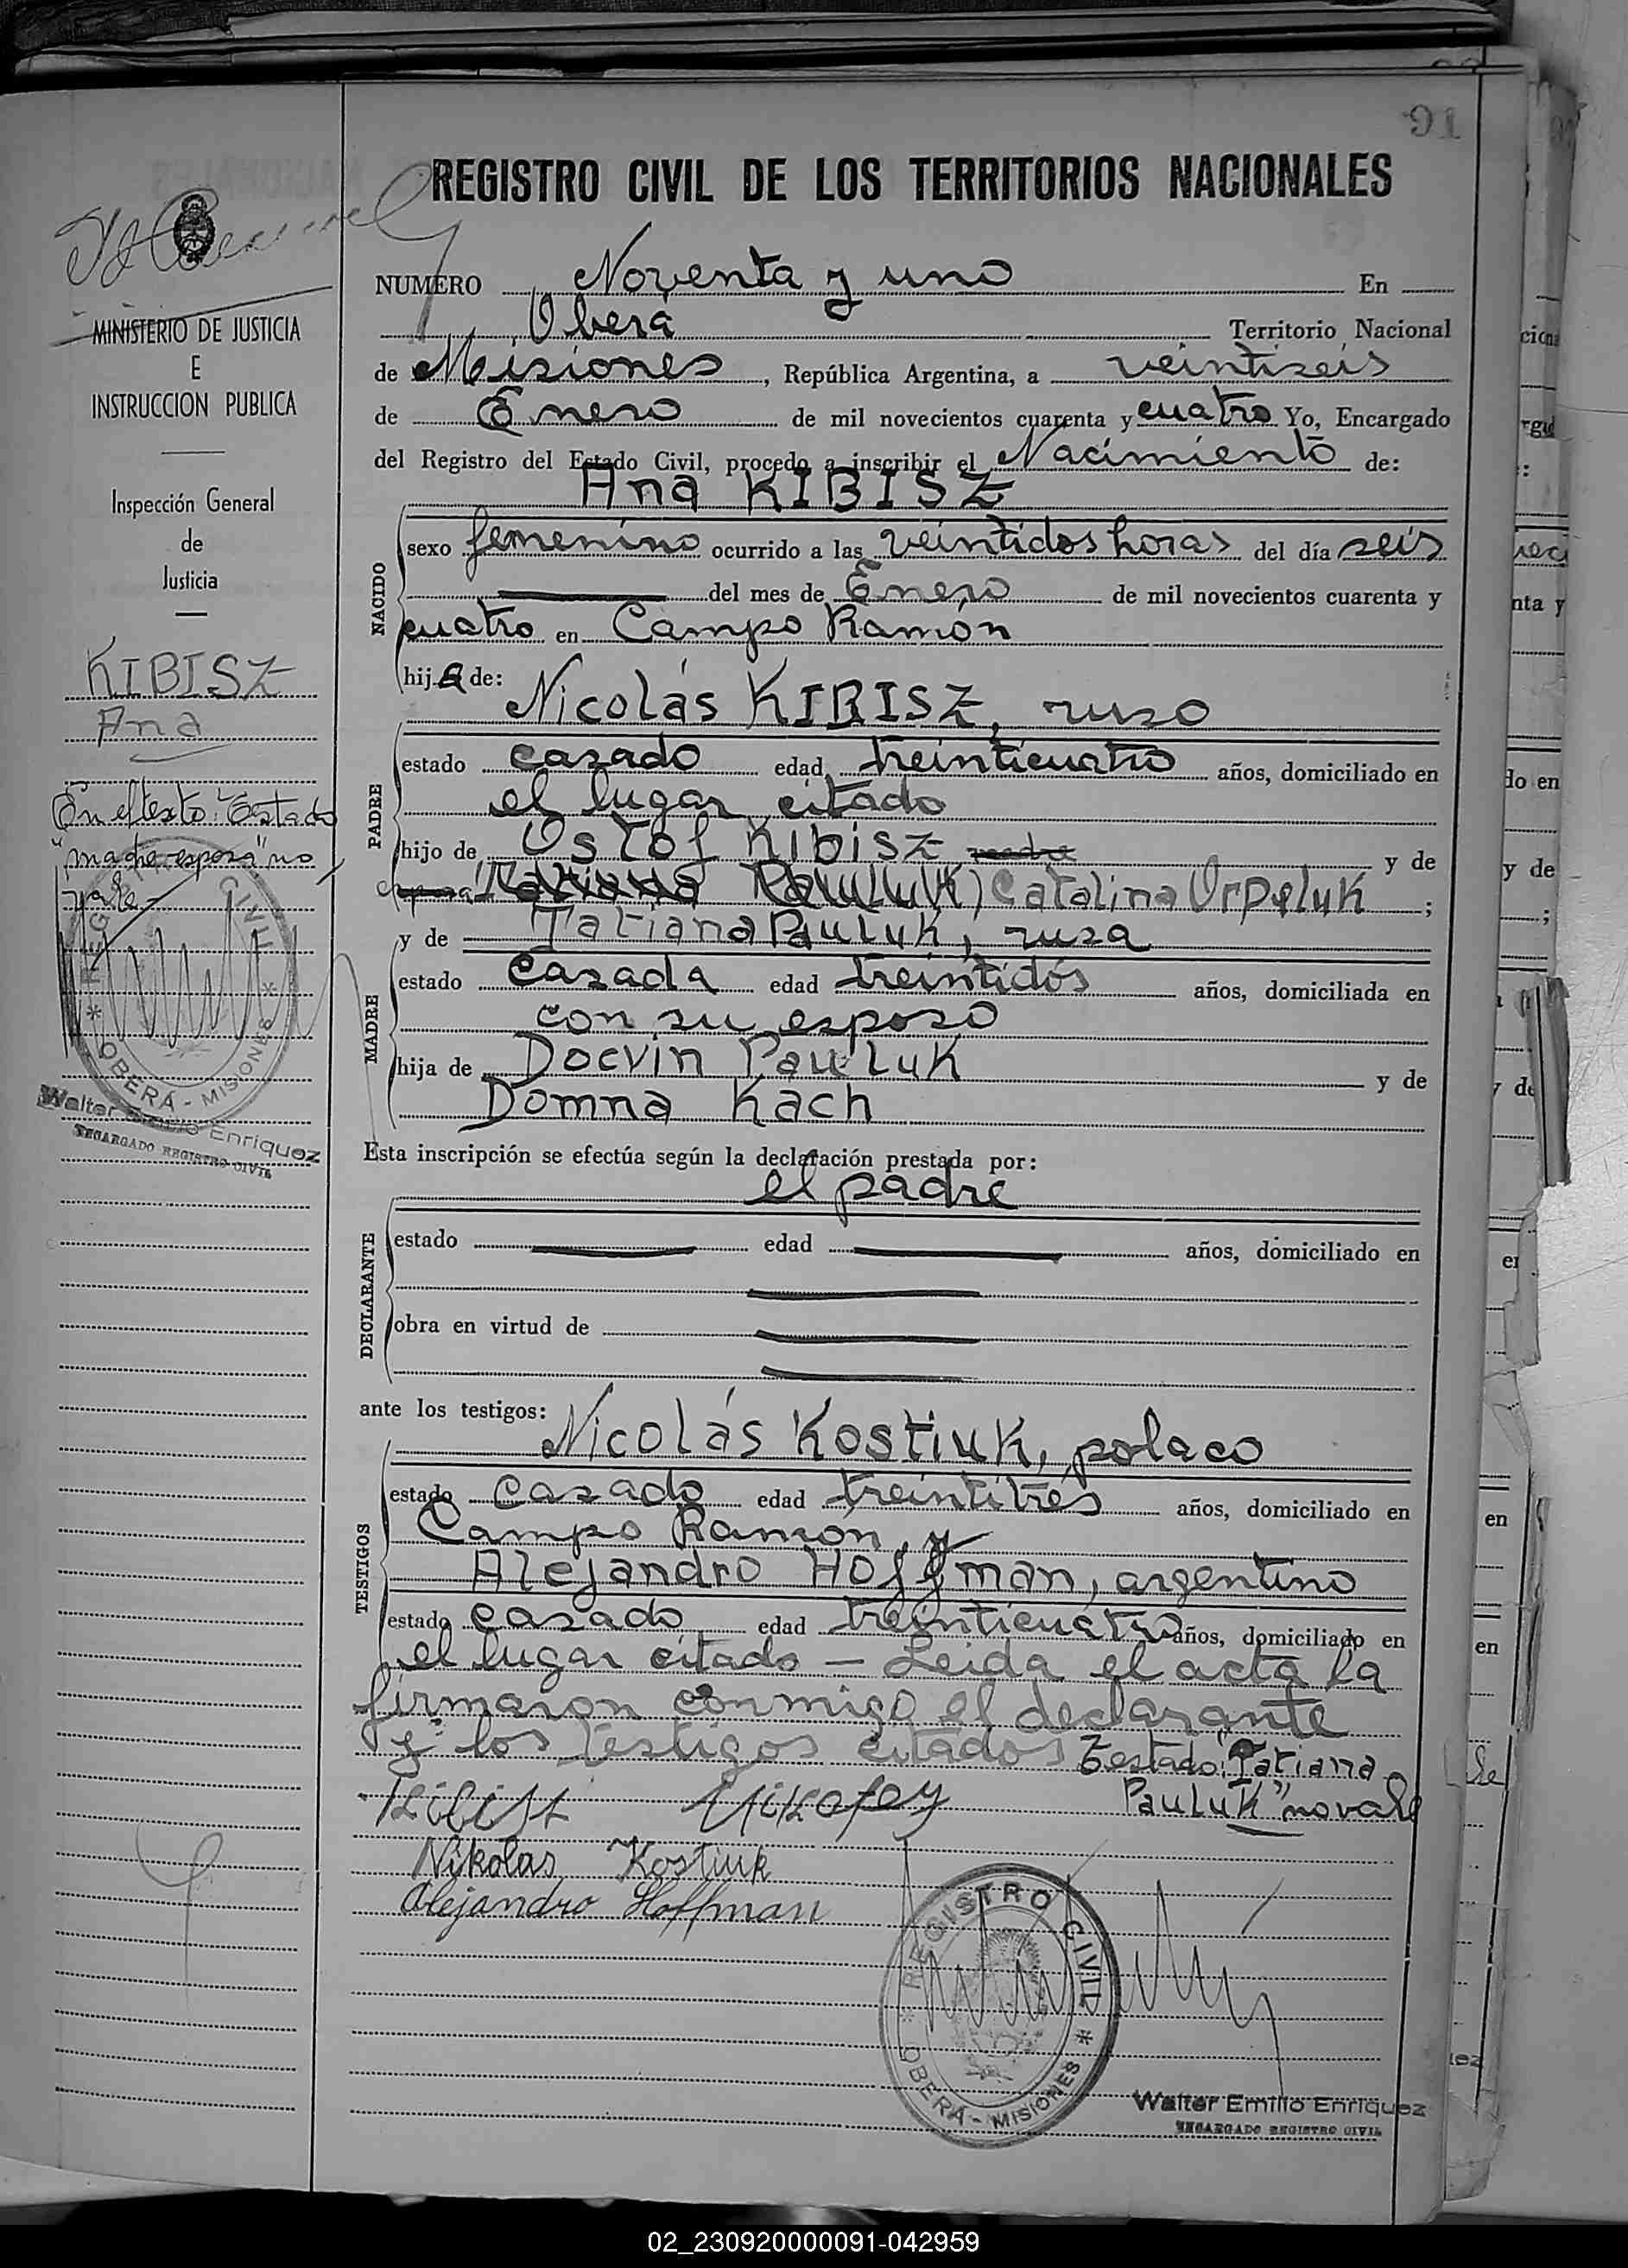 91
REGISTRO CIVIL DE LOS TERRITORIOS NACIONALES
MINISTERIO DE JUSTICIA
E
INSTRUCCION PUBLICA
Inspección General
de
Justicia
KIBISZ
Ana
En el texto: Testado
"madre esposa" no
vale
REGISTRO CIVIL
OBERÁ - MISIONES
Walter Emilio Enriquez
ENCARGADO REGISTRO CIVIL
NUMERO Noventa y uno En
Oberá Territorio Nacional
de Misiones, República Argentina, a veintiseis
de Enero de mil novecientos cuarenta y cuatro Yo, Encargado
del Registro del Estado Civil, procedo a inscribir el Nacimiento de:
Ana KIBISZ
NACIDO
sexo femenino ocurrido a las veintidos horas del día seis
del mes de Enero de mil novecientos cuarenta y
cuatro en Campo Ramón
hija de:
Nicolás KIBISZ, ruso
PADRE
estado casado edad treinticuatro años, domiciliado en
el lugar citado
hijo de Ostof Kibisz madre y de
esposa (Tatiana Pauluk) Catalina Urpeluk ;
y de Tatiana Pauluk, rusa
MADRE
estado casada edad treintidós años, domiciliada en
con su esposo
hija de Docvin Pauluk y de
Domna Kach
Esta inscripción se efectúa según la declaración prestada por:
el padre
DECLARANTE
estado edad años, domiciliado en
obra en virtud de
ante los testigos:
Nicolás Kostiuk, polaco
TESTIGOS
estado casado edad treintitrés años, domiciliado en
Campo Ramón, y
Alejandro Hoffman, argentino
estado casado edad treinticuatro años, domiciliado en
el lugar citado — Leida el acta la
firmaron conmigo el declarante
y los testigos citados Testado: "Tatiana
Pauluk" no vale
Kibisz Mikołay
Nikolas Kostiuk
Alejandro Hoffman
REGISTRO CIVIL
OBERÁ - MISIONES
Walter Emilio Enriquez
ENCARGADO REGISTRO CIVIL
02_230920000091-042959